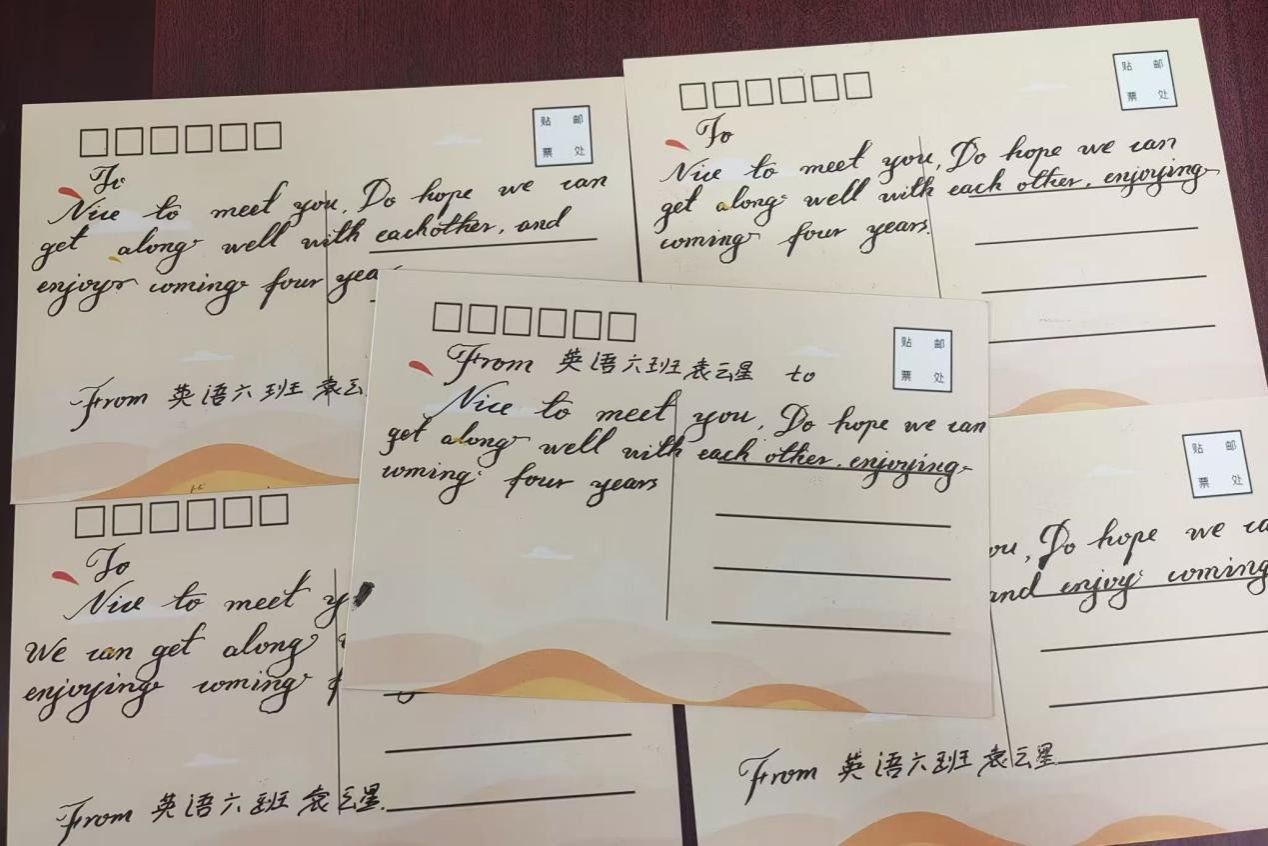 贴 邮
票 处
To
Nice to meet you, Do hope we can
get along well with eachother, and
enjoys coming four yea
From 英语六班 袁云
贴 邮
票 处
To
Nice to meet you, Do hope we can
get along well with each other, enjoying
coming four years.
贴 邮
票 处
From 英语六班袁云星 to
Nice to meet you, Do hope we can
get along well with each other, enjoying
coming four years
To
Nice to meet
We can get along
enjoying coming
From 英语六班 袁云星.
贴 邮
票 处
ou, Do hope we ca
and enjoy coming
From 英语六班 袁云星